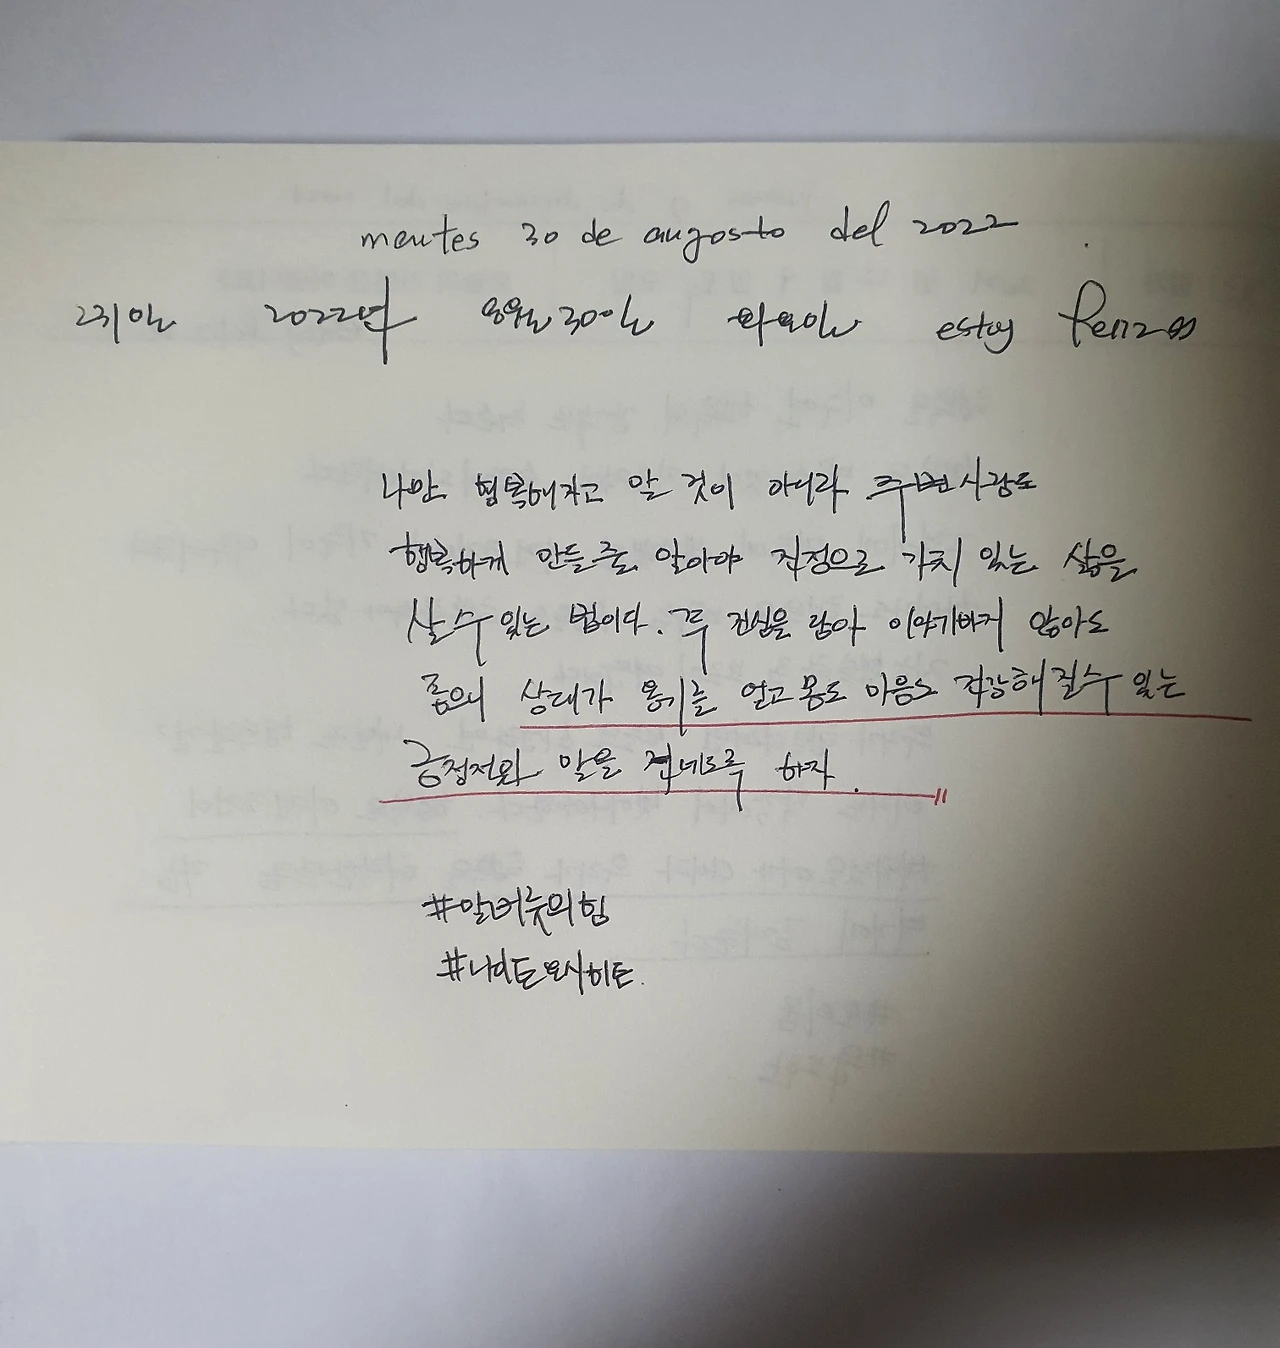 martes 30 de augosto del 2022
23일 2022년 8월 30일 화요일 estoy
나만 행복해지고 말 것이 아니라 주변사람도
행복하게 만들 줄 알아야 진정으로 가치 있는 삶을
살 수 있는 법이다. 꼭 진심을 담아 이야기하지 않아도
좋으니 상대가 용기를 얻고 몸도 마음도 건강해질 수 있는
긍정적인 말을 건네도록 하자.
#말버릇의힘
#나이토요시히토.